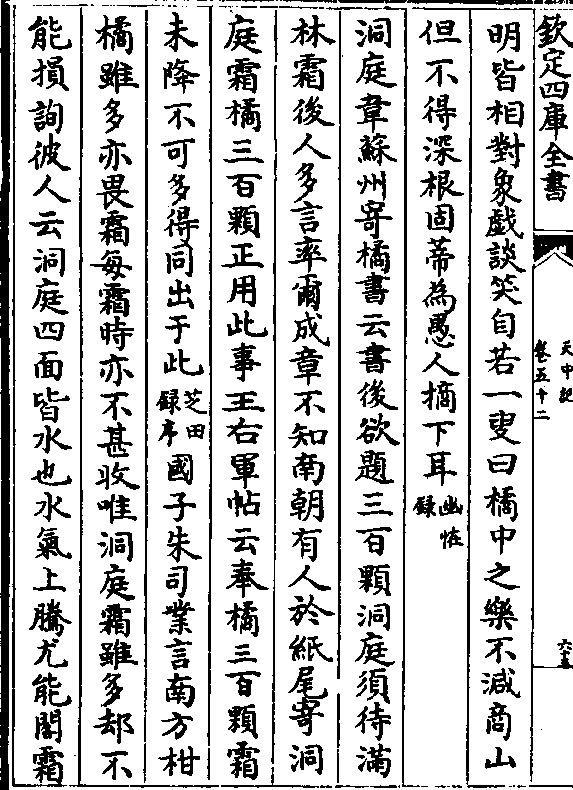 欽定四庫全書
天中記
卷五十二
六十五
明皆相對象戲談笑自若一叟曰橘中之樂不減商山
但不得深根固蒂為愚人摘下耳幽怪錄
洞庭韋蘇州寄橘書云書後欲題三百顆洞庭須待滿
林霜後人多言率爾成章不知南朝有人於紙尾寄洞
庭霜橘三百顆正用此事王右軍帖云奉橘三百顆霜
未降不可多得同出于此芝田錄序國子朱司業言南方柑
橘雖多亦畏霜每霜時亦不甚收唯洞庭霜雖多却不
能損詢彼人云洞庭四面皆水也水氣上騰尤能闢霜